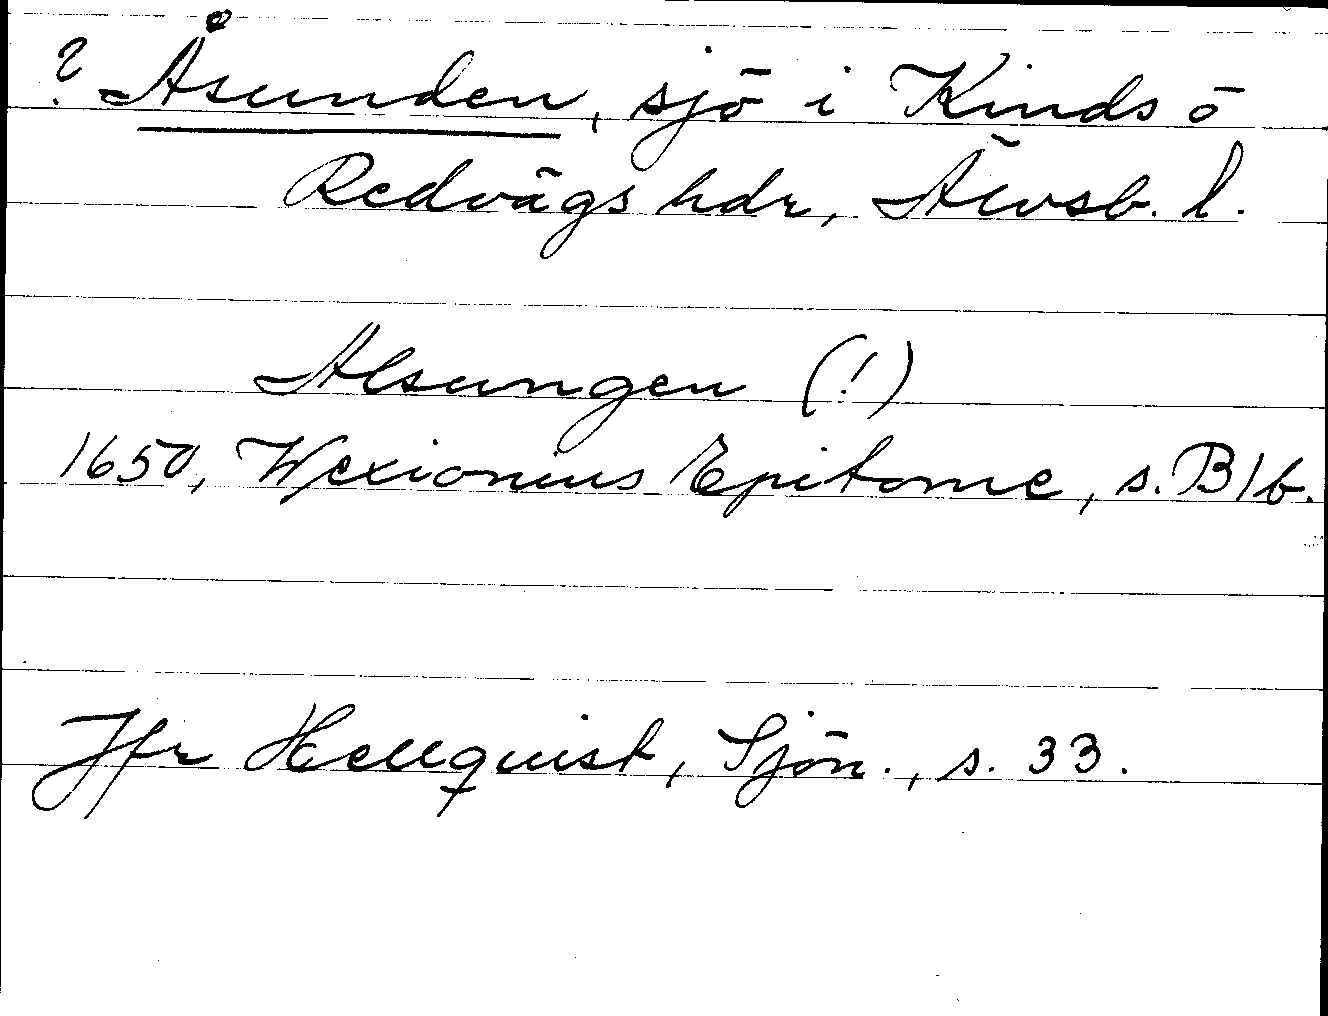 ? Åsunden, sjö i Kinds o
Redvägs hdr, Älvsb. l.
Alsungen (!)
1650, Wexionius Epitome, s. B1b.
Jfr Hellquist, Sjön., s. 33.